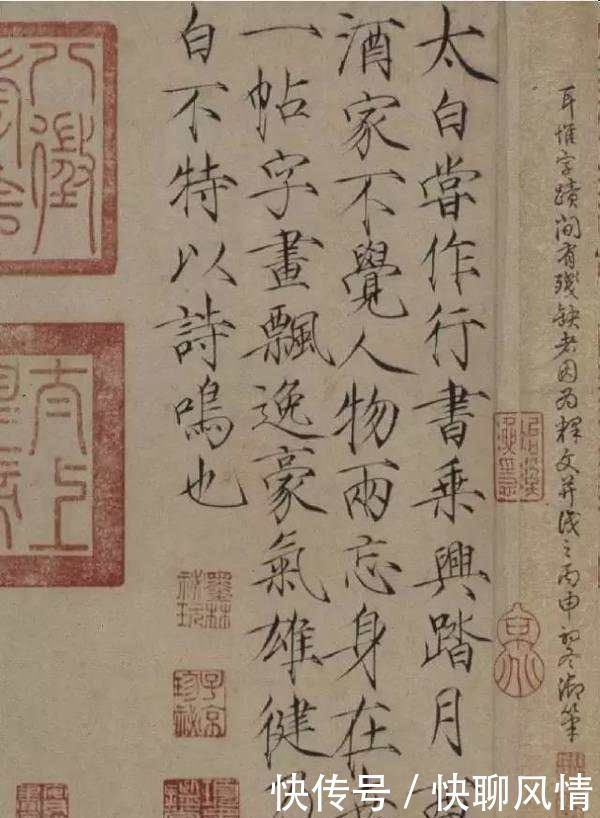 耳惟字蹟間有殘缺者因为釋文并識之丙申初冬御筆
太白嘗作行書乘興踏月
酒家不覺人物兩忘身在
一帖字畫飄逸豪氣雄健
白不特以詩鳴也
墨林秘玩
子京珍秘
八徵
太上
快传号 / 快聊风情